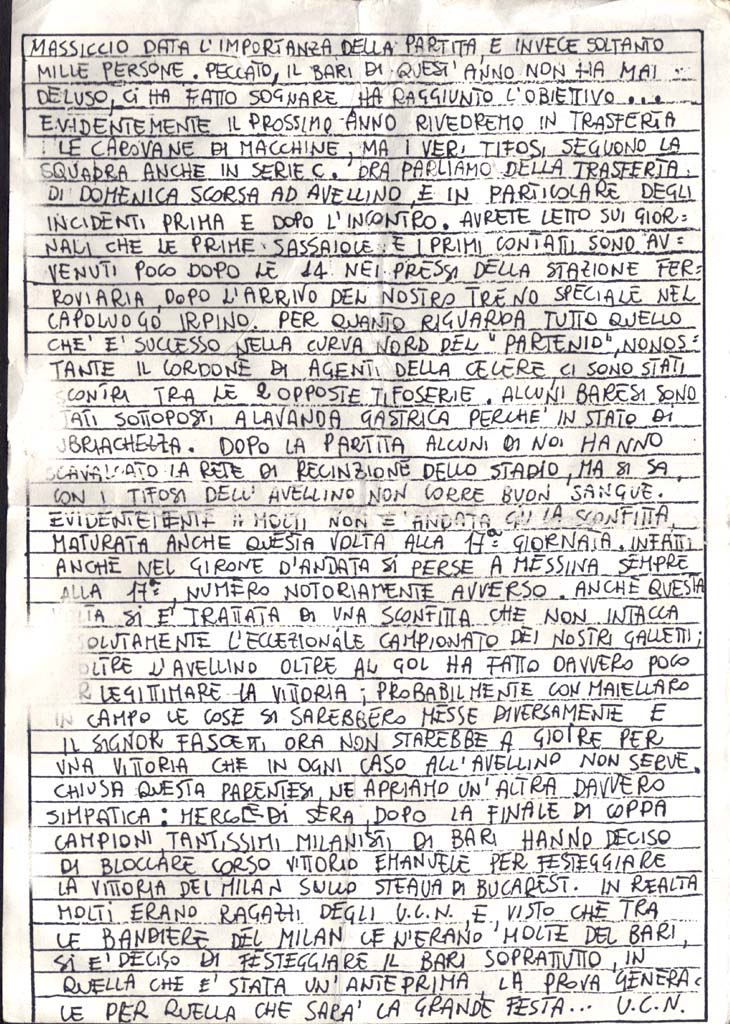 MASSICCIO DATA L'IMPORTANZA DELLA PARTITA, E INVECE SOLTANTO
MILLE PERSONE. PECCATO, IL BARI DI QUEST'ANNO NON HA MAI
DELUSO, CI HA FATTO SOGNARE, HA RAGGIUNTO L'OBIETTIVO...
EVIDENTEMENTE IL PROSSIMO ANNO RIVEDREMO IN TRASFERTA
LE CAROVANE DI MACCHINE, MA I VERI TIFOSI SEGUONO LA
SQUADRA ANCHE IN SERIE C. ORA PARLIAMO DELLA TRASFERTA
DI DOMENICA SCORSA AD AVELLINO, E IN PARTICOLARE DEGLI
INCIDENTI PRIMA E DOPO L'INCONTRO. AVRETE LETTO SUI GIOR=
NALI CHE LE PRIME SASSAIOLE E I PRIMI CONTATTI SONO AV=
VENUTI POCO DOPO LE 14 NEI PRESSI DELLA STAZIONE FER=
ROVIARIA, DOPO L'ARRIVO DEL NOSTRO TRENO SPECIALE NEL
CAPOLUOGO IRPINO. PER QUANTO RIGUARDA TUTTO QUELLO
CHE' E' SUCCESSO NELLA CURVA NORD DEL "PARTENIO", NONOS=
TANTE IL CORDONE DI AGENTI DELLA CELERE, CI SONO STATI
SCONTRI TRA LE 2 OPPOSTE TIFOSERIE. ALCUNI BARESI SONO
TATI SOTTOPOSTI A LAVANDA GASTRICA PERCHE' IN STATO DI
UBRIACHEZZA. DOPO LA PARTITA ALCUNI DI NOI HANNO
SCAVALCATO LA RETE DI RECINZIONE DELLO STADIO, MA SI SA,
CON I TIFOSI DELL'AVELLINO NON CORRE BUON SANGUE.
EVIDENTEMENTE A MOLTI NON E' ANDATA GIU LA SCONFITTA,
MATURATA ANCHE QUESTA VOLTA ALLA 17ª GIORNATA. INFATTI
ANCHE NEL GIRONE D'ANDATA SI PERSE A MESSINA SEMPRE
ALLA 17ª, NUMERO NOTORIAMENTE AVVERSO. ANCHE QUESTA
VOLTA SI E' TRATTATA DI UNA SCONFITTA CHE NON INTACCA
SOLUTAMENTE L'ECCEZIONALE CAMPIONATO DEI NOSTRI GALLETTI;
OLTRE L'AVELLINO OLTRE AL GOL HA FATTO DAVVERO POCO
PER LEGITTIMARE LA VITTORIA; PROBABILMENTE CON MAIELLARO
IN CAMPO LE COSE SI SAREBBERO MESSE DIVERSAMENTE E
IL SIGNOR FASCETTI ORA NON STAREBBE A GIOIRE PER
UNA VITTORIA CHE IN OGNI CASO ALL'AVELLINO NON SERVE.
CHIUSA QUESTA PARENTESI, NE APRIAMO UN'ALTRA DAVVERO
SIMPATICA: MERCOLEDI SERA, DOPO LA FINALE DI COPPA
CAMPIONI, TANTISSIMI MILANISTI DI BARI HANNO DECISO
DI BLOCCARE CORSO VITTORIO EMANUELE PER FESTEGGIARE
LA VITTORIA DEL MILAN SULLO STEAUA DI BUCAREST. IN REALTA
MOLTI ERANO RAGAZZI DEGLI U.C.N. E VISTO CHE TRA
LE BANDIERE DEL MILAN CE N'ERANO MOLTE DEL BARI,
SI E' DECISO DI FESTEGGIARE IL BARI SOPRATTUTTO, IN
QUELLA CHE E' STATA UN'ANTEPRIMA, LA PROVA GENERA=
LE PER QUELLA CHE SARA' LA GRANDE FESTA... U.C.N.